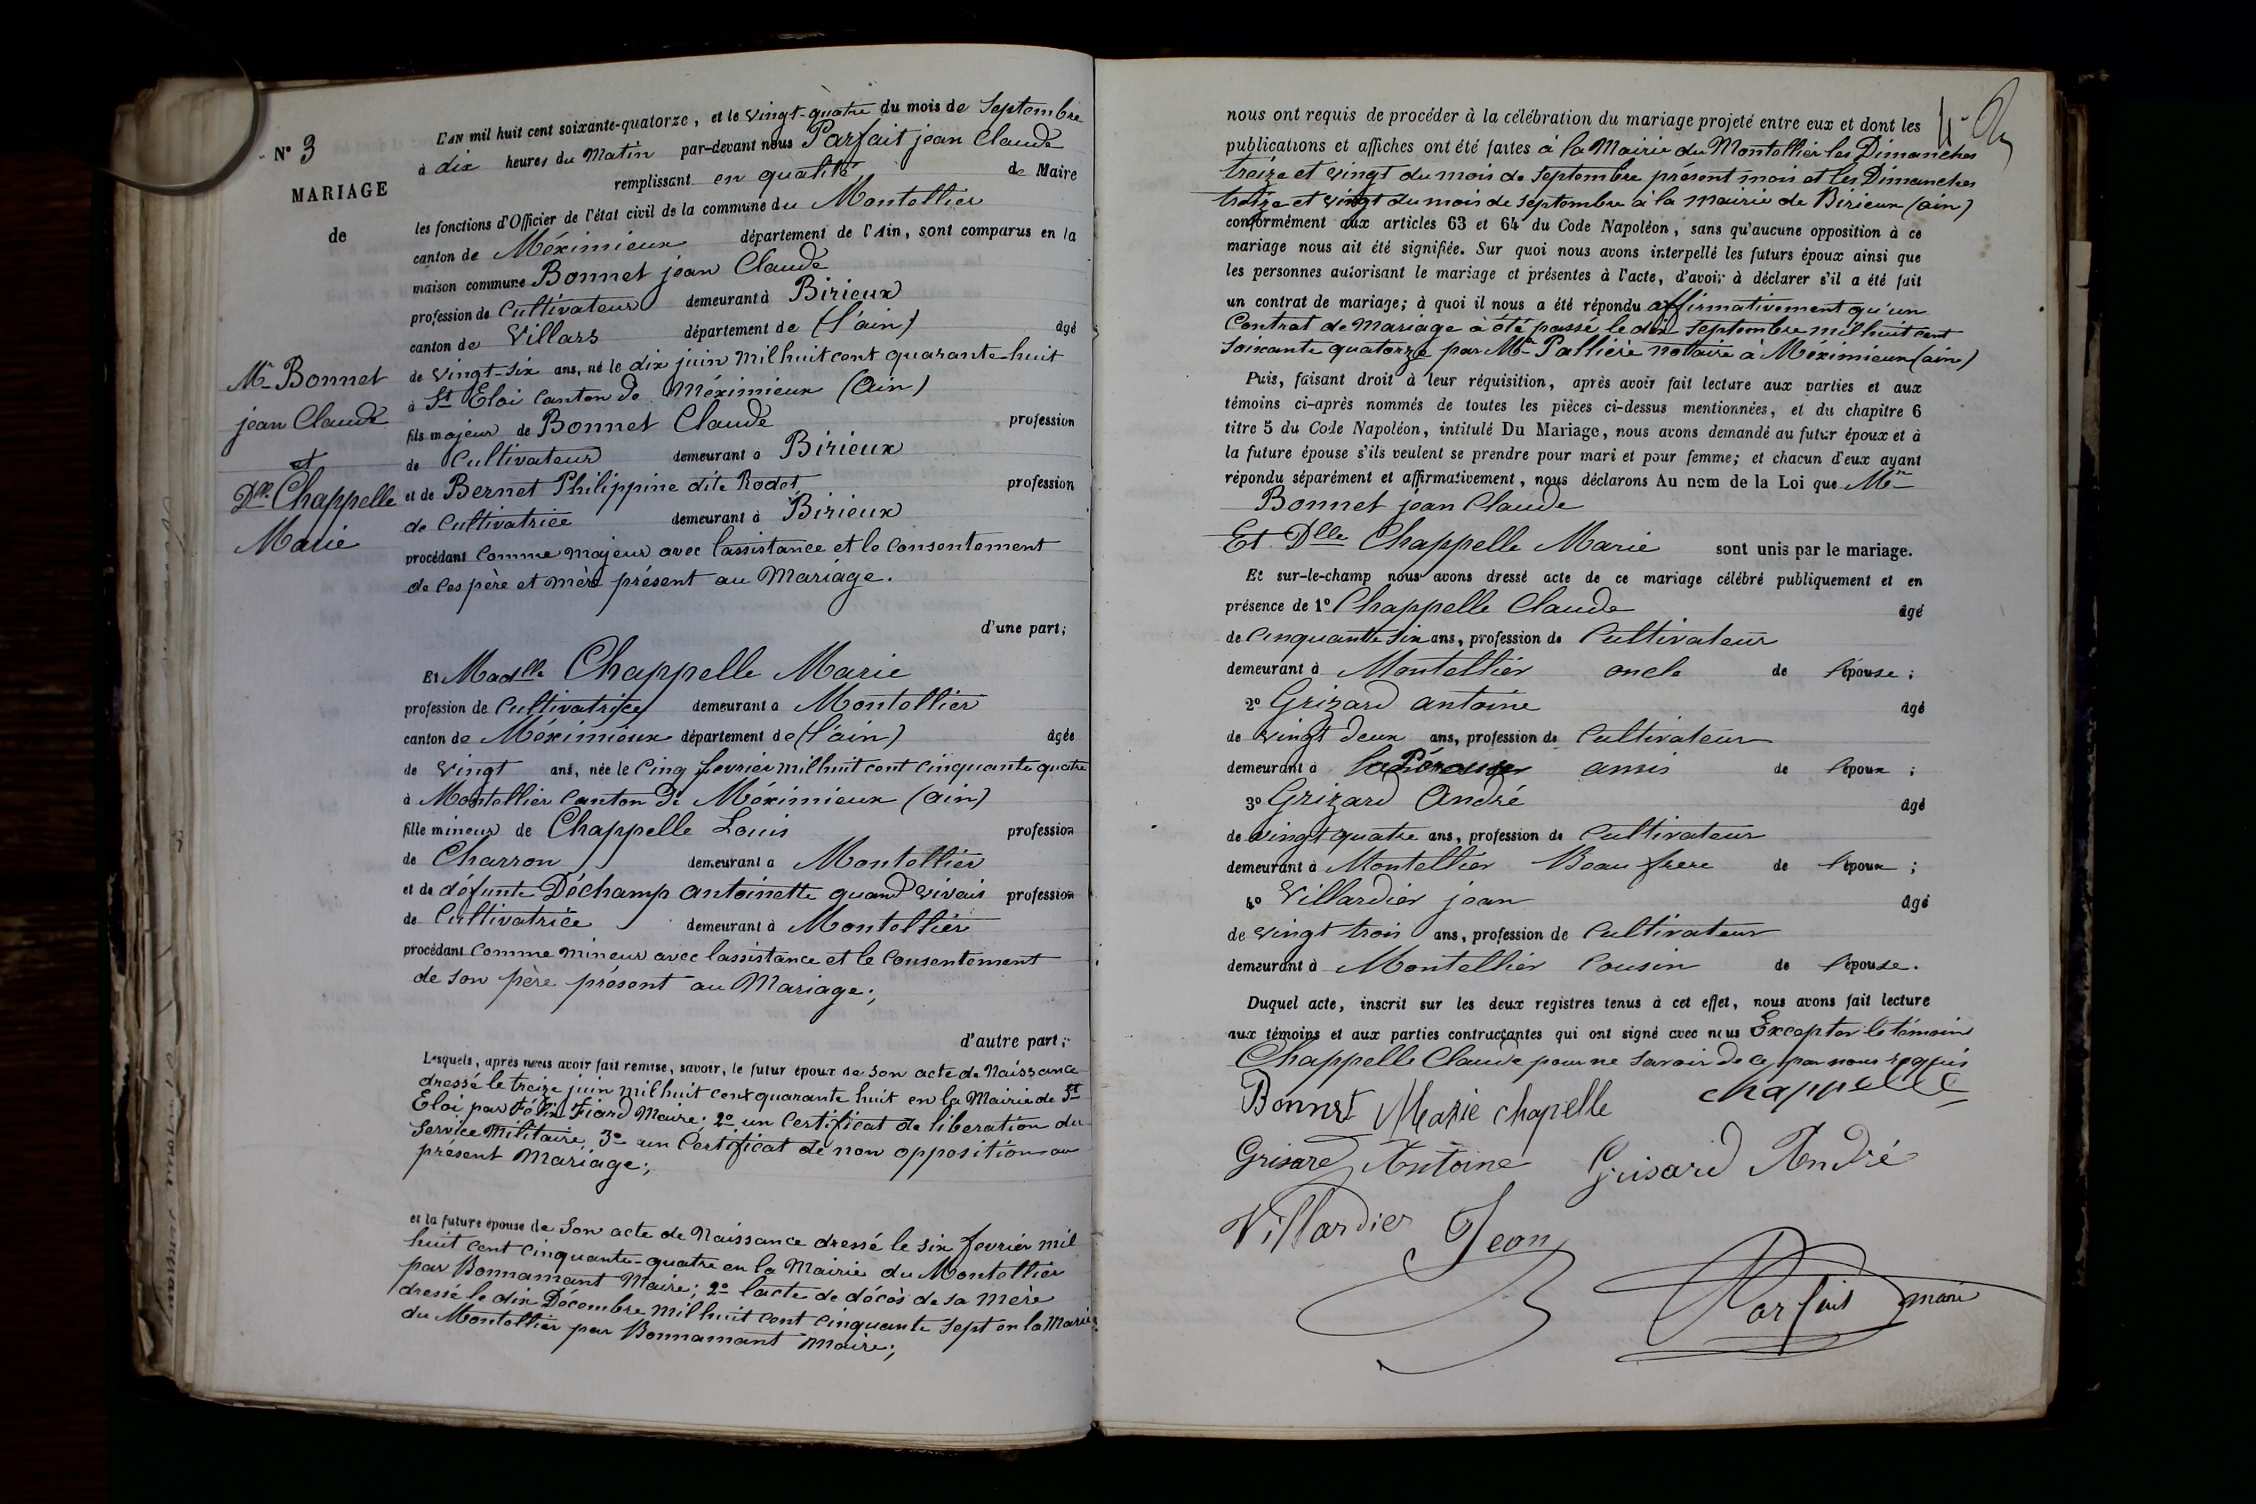 N° 3
MARIAGE
de
Mr Bonnet
jean Claude
et
Dlle Chappelle
Marie
L'AN mil huit cent soixante-quatorze, et le vingt-quatre du mois de Septembre
à dix heures du Matin par-devant nous Parfait jean Claude
remplissant en qualité de Maire
les fonctions d'Officier de l'état civil de la commune du Montellier
canton de Méximieux département de l'Ain, sont comparus en la
maison commune Bonnet jean Claude
profession de Cultivateur demeurant à Birieux
canton de Villars département de (l'ain) âgé
de vingt-six ans, né le dix juin mil huit cent quarante-huit
à St Eloi Canton de Méximieux (Ain)
fils majeur de Bonnet Claude profession
de Cultivateur demeurant à Birieux
et de Bernet Philippine dite Rodet profession
de Cultivatrice demeurant à Birieux
procédant Comme majeur avec l'assistance et le Consentement
de ces père et mère présent au Mariage.
d'une part;
Et Madlle Chappelle Marie
profession de Cultivatrice demeurant à Montellier
canton de Méximieux département de (l'ain) âgée
de vingt ans, née le Cinq fevrier mil huit cent cinquante quatre
à Montellier Canton de Méximieux (ain)
fille mineur de Chappelle Louis profession
de Charron demeurant à Montellier
et de défunte Déchamp antoinette quand vivais profession
de Cultivatrice demeurant à Montellier
procédant Comme mineur avec lassistance et le Consentement
de son père présent au Mariage;
d'autre part;
Lesquels, après nous avoir fait remise, savoir, le futur époux de son acte de Naissance
dressé le treize juin mil huit cent quarante huit en la Mairie de St
Eloi par Félix Fiard Maire; 2° un Certificat de liberation du
Service Militaire, 3° un Certificat de non opposition au
présent Mariage;
et la future épouse de Son acte de Naissance dressé le six fevrier mil
huit cent cinquante-quatre en la Mairie du Montellier
par Bonnamant Maire; 2° lacte de décès de sa mère
dressé le dix Décembre mil huit cent cinquante sept en la Mairie
du Montellier par Bonnamant Maire;
nous ont requis de procéder à la célébration du mariage projeté entre eux et dont les
publications et affiches ont été faites à la Mairie du Montellier les Dimanches
treize et vingt du mois de Septembre présent mois et les Dimanches
treize et vingt du mois de Septembre à la Mairie de Birieux (ain)
conformément aux articles 63 et 64 du Code Napoléon, sans qu'aucune opposition à ce
mariage nous ait été signifiée. Sur quoi nous avons interpellé les futurs époux ainsi que
les personnes autorisant le mariage et présentes à l'acte, d'avoir à déclarer s'il a été fait
un contrat de mariage; à quoi il nous a été répondu affirmativement qu'un
Contrat de Mariage à été passé le dix Septembre mil huit cent
soixante quatorze par Me Pallière notaire à Méximieux (ain)
Puis, faisant droit à leur réquisition, après avoir fait lecture aux parties et aux
témoins ci-après nommés de toutes les pièces ci-dessus mentionnées, et du chapitre 6
titre 5 du Code Napoléon, intitulé Du Mariage, nous avons demandé au futur époux et à
la future épouse s'ils veulent se prendre pour mari et pour femme; et chacun d'eux ayant
répondu séparément et affirmativement, nous déclarons Au nom de la Loi que Mr
Bonnet jean Claude
Et Dlle Chappelle Marie sont unis par le mariage.
Et sur-le-champ nous avons dressé acte de ce mariage célébré publiquement et en
présence de 1° Chappelle Claude âgé
de Cinquante six ans, profession de Cultivateur
demeurant à Montellier oncle de l'épouse;
2° Grizard antoine âgé
de vingt deux ans, profession de Cultivateur
demeurant à amis de l'époux;
3° Grizard André âgé
de vingt quatre ans, profession de Cultivateur
demeurant à Montellier Beau frere de l'époux;
4° Villardier jean âgé
de vingt trois ans, profession de Cultivateur
demeurant à Montellier Cousin de l'épouse.
Duquel acte, inscrit sur les deux registres tenus à cet effet, nous avons fait lecture
aux témoins et aux parties contractantes qui ont signé avec nous Excepter le témoins
Chappelle Claude pour ne savoir de ce par nous requis
Bonnet Marie chapelle chappelle
Grisard Antoine Grisard André
Villardier Jean
Parfait maire